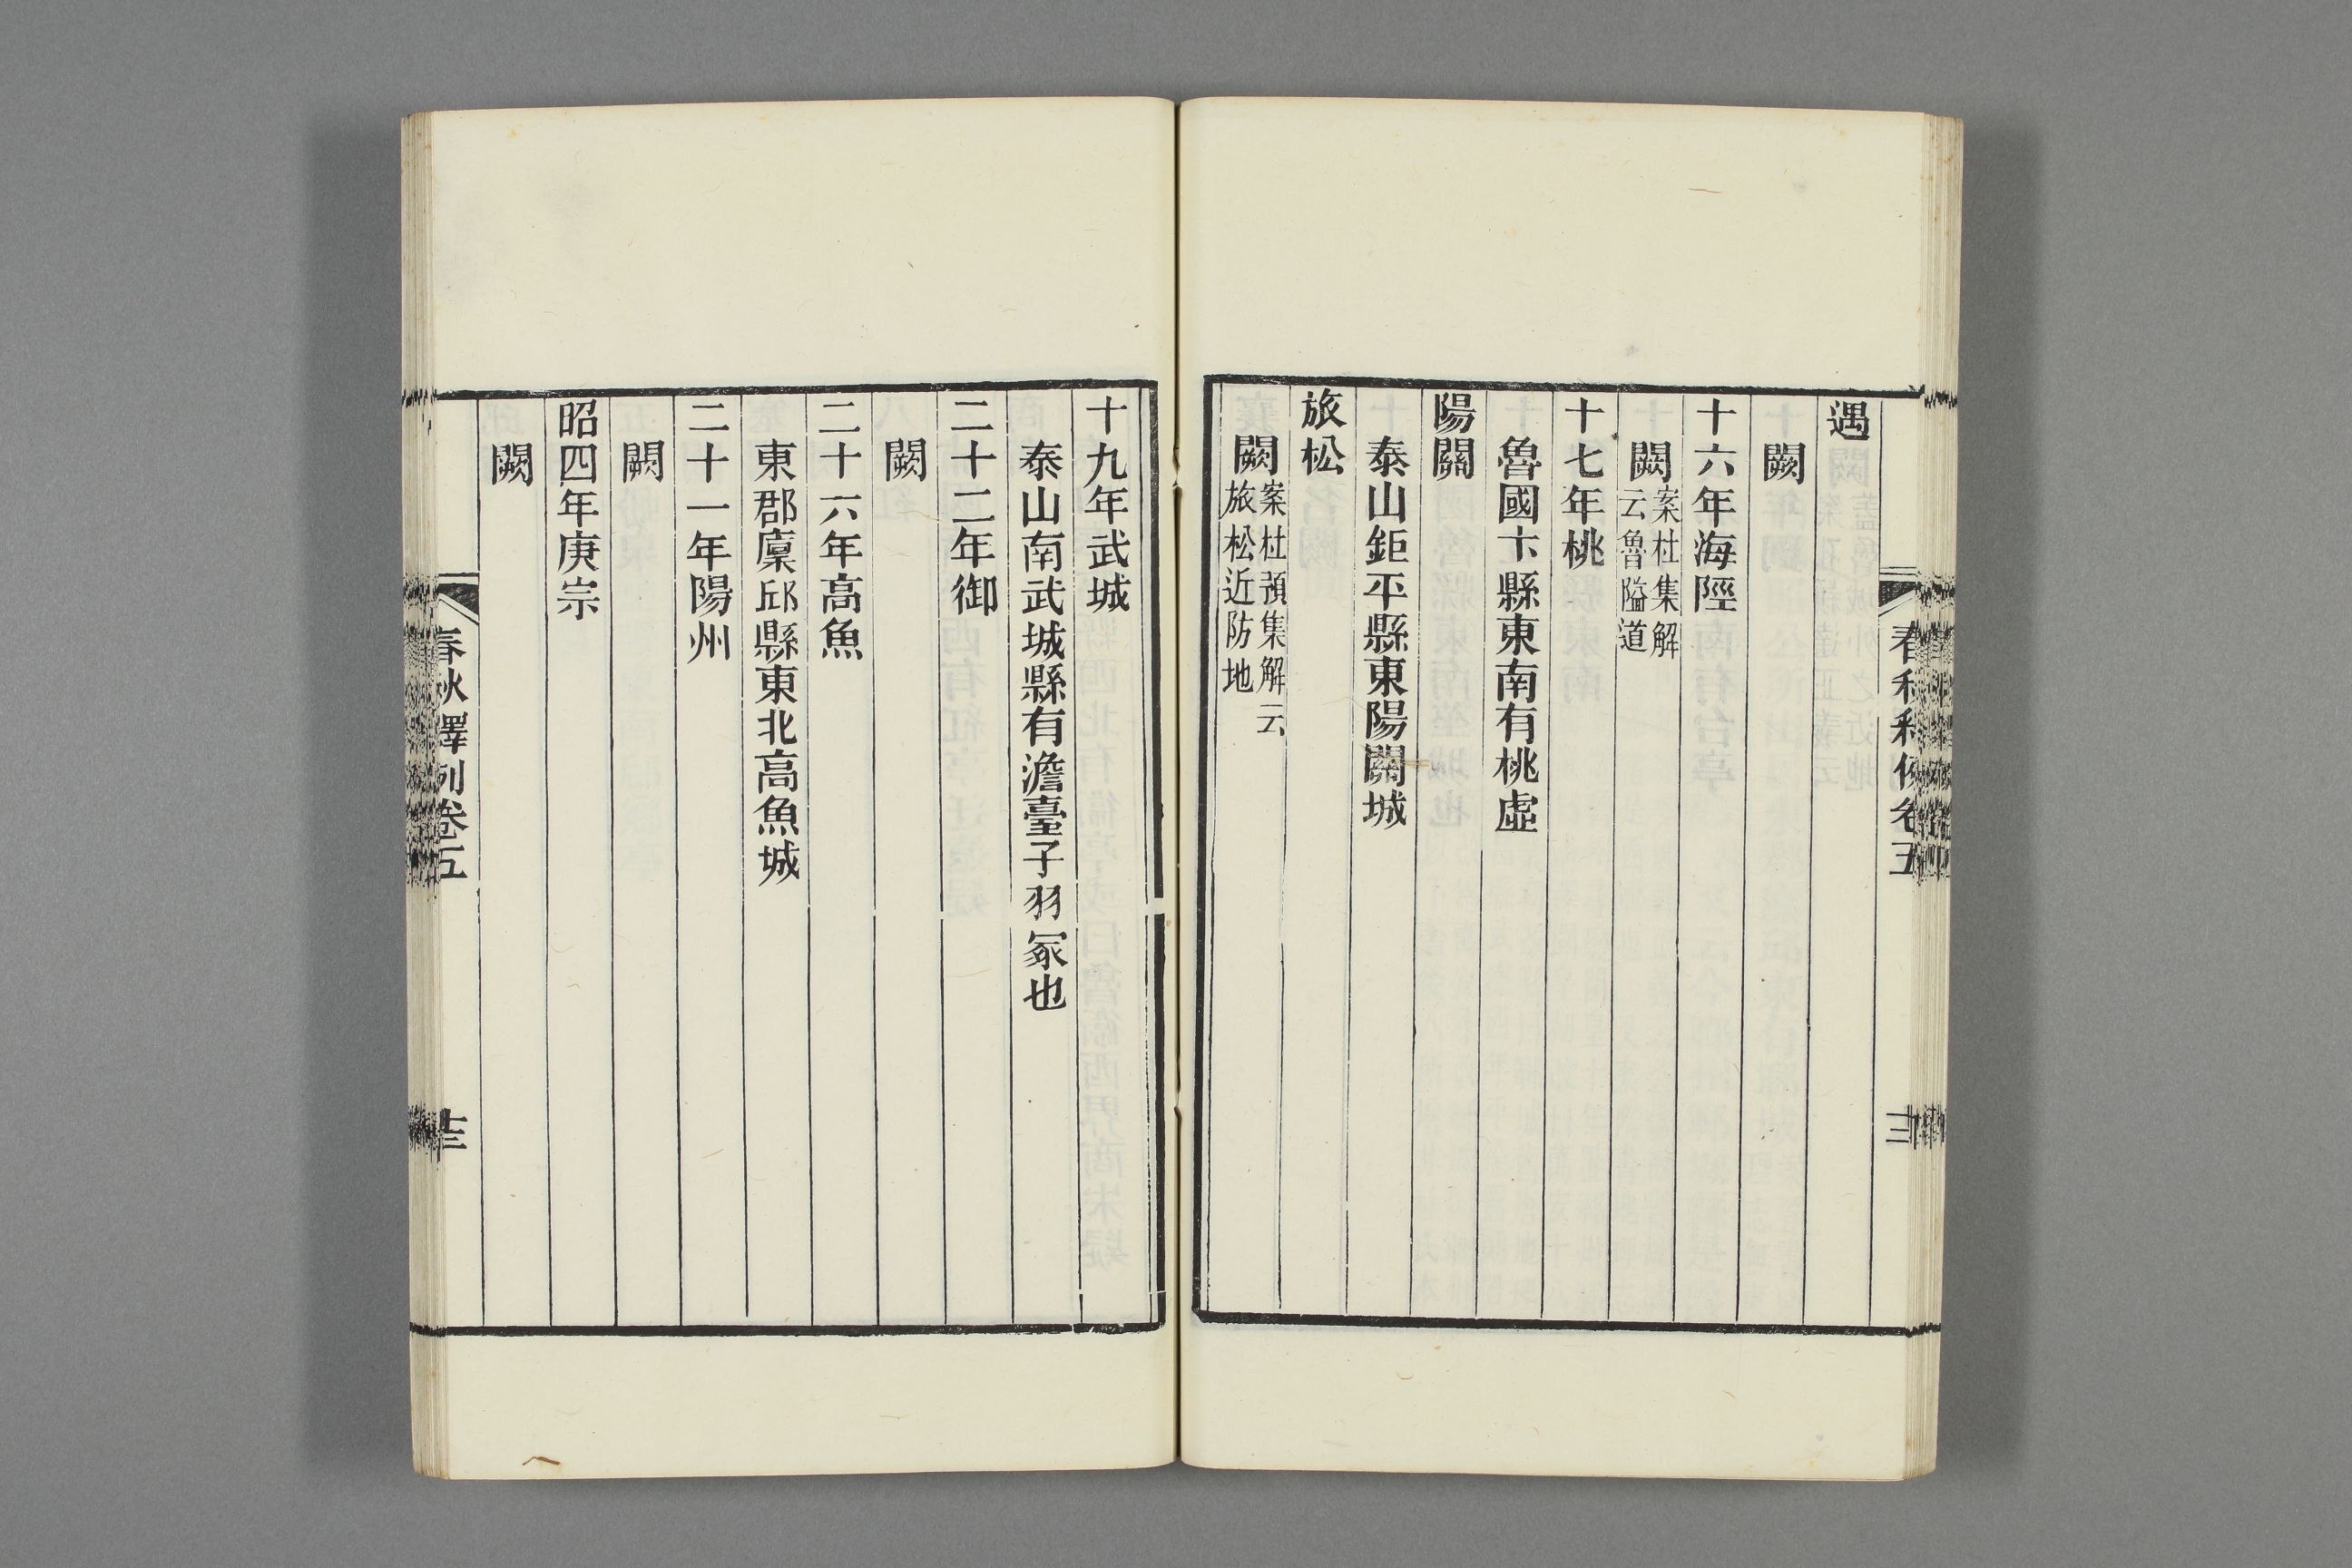 遇
闕
十六年海陘
闕案杜集解云魯隘道
十七年桃
魯國卞縣東南有桃虛
陽關
泰山鉅平縣東陽關城
旅松
闕案杜預集解云旅松近防地
十九年武城
泰山南武城縣有澹臺子羽冢也
二十二年御
闕
二十六年高魚
東郡廩邱縣東北高魚城
二十一年陽州
闕
昭四年庚宗
闕
春秋釋例卷五